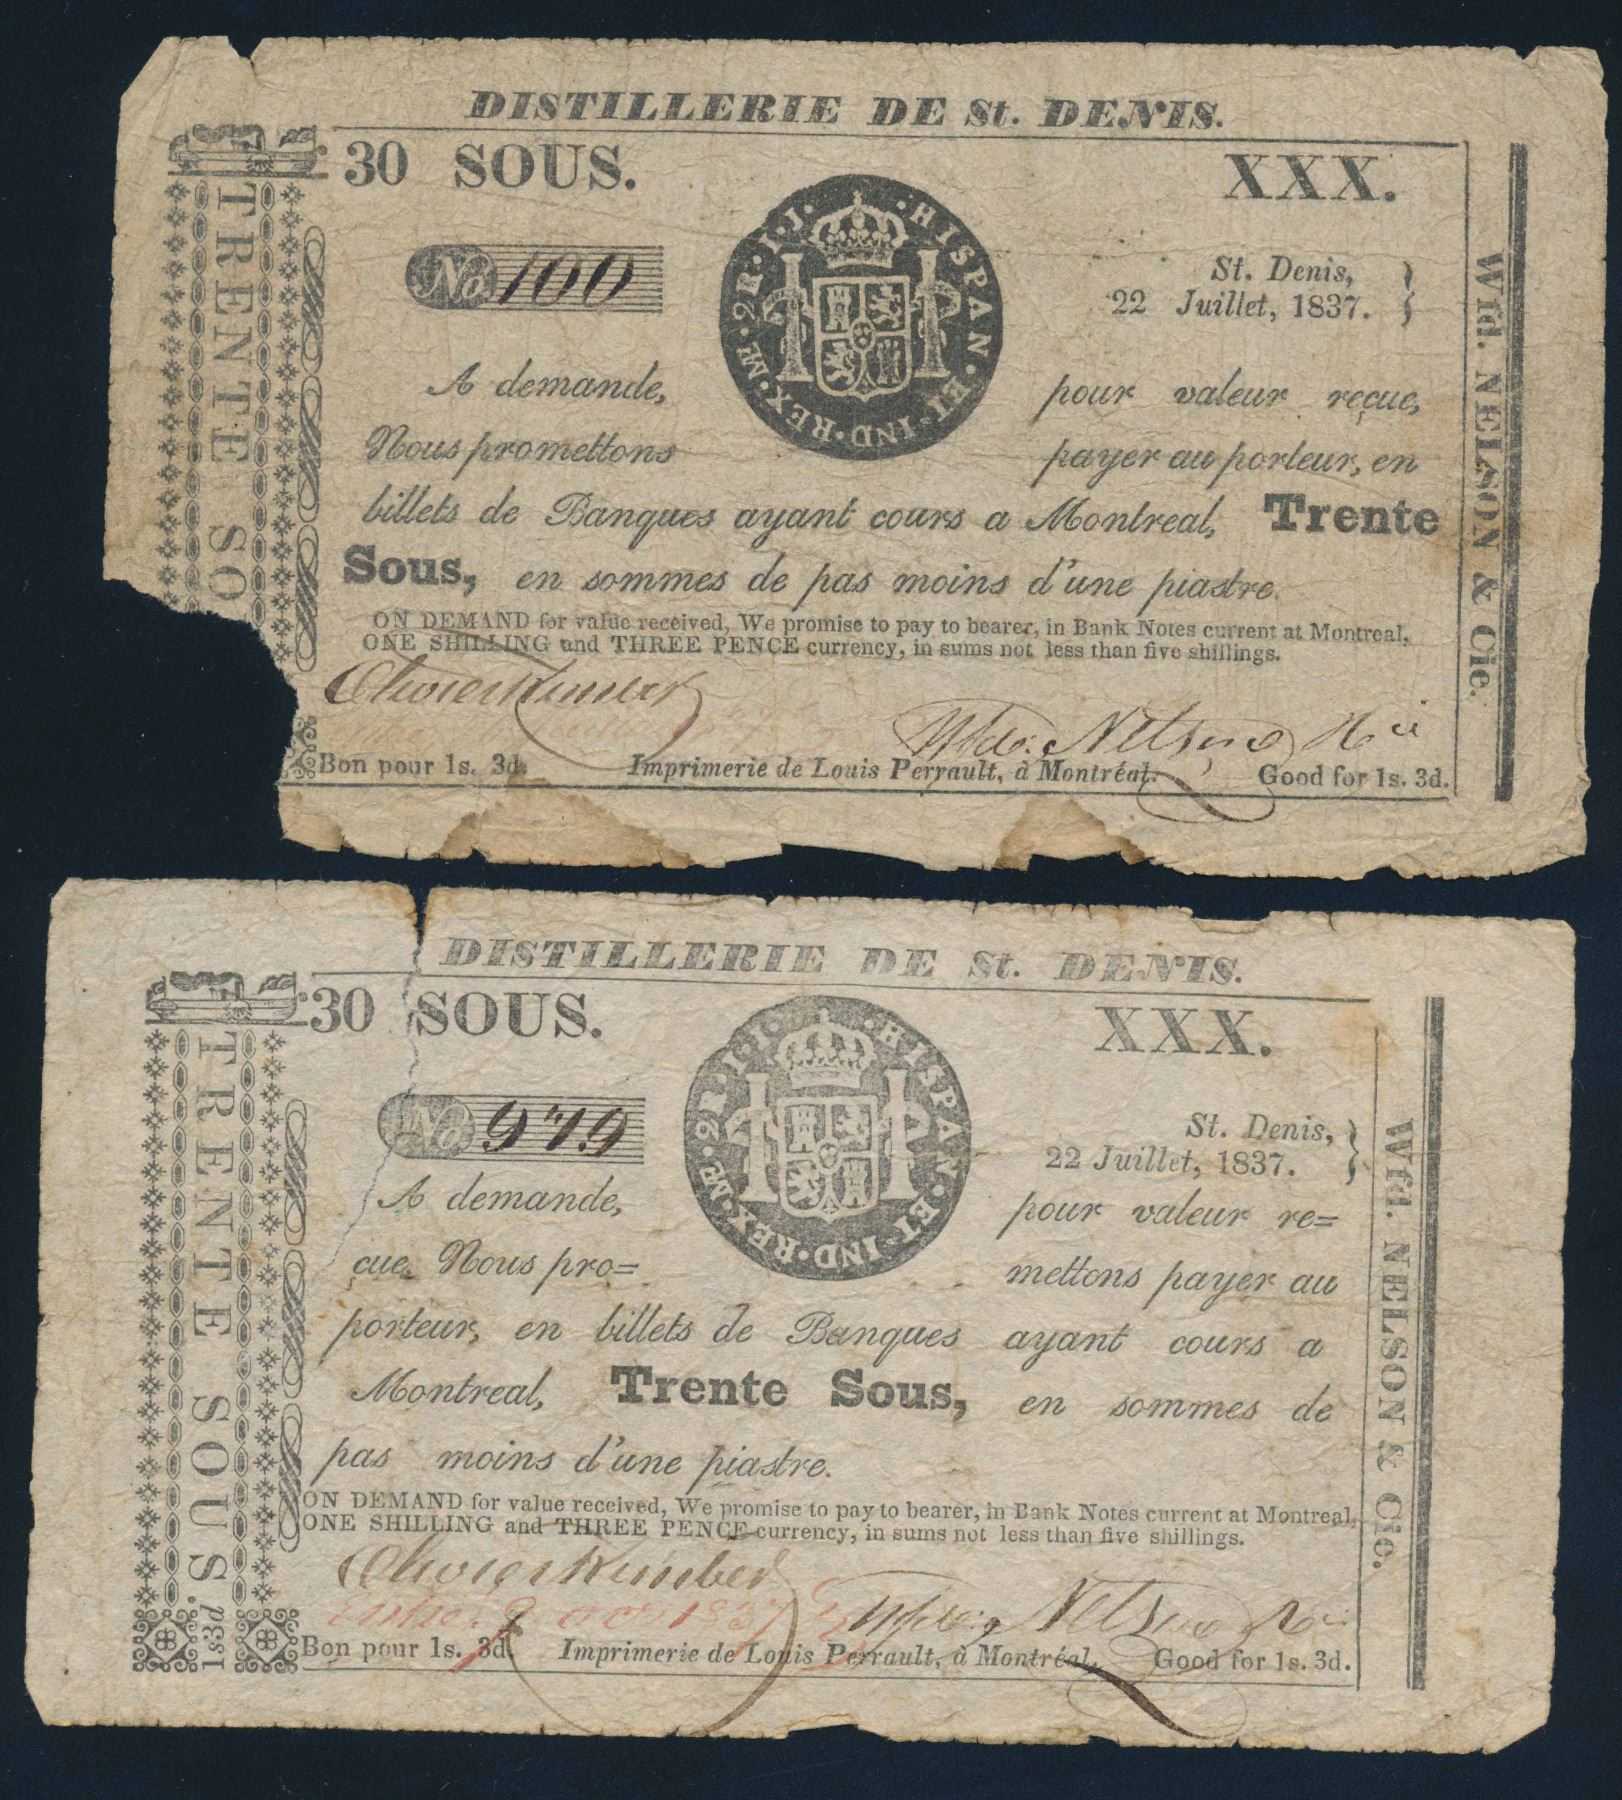 DISTILLERIE DE St. DENIS.
30 SOUS.
XXX.
TRENTE SO
No 100
HISPAN·ET·IND·REX·
St. Denis,
22 Juillet, 1837.
A demande, pour valeur reçue,
Nous promettons payer au porteur, en
billets de Banques ayant cours a Montreal, Trente
Sous, en sommes de pas moins d'une piastre.
ON DEMAND for value received, We promise to pay to bearer, in Bank Notes current at Montreal,
ONE SHILLING and THREE PENCE currency, in sums not less than five shillings.
Wfd. Nelson & Cie
Bon pour 1s. 3d. Imprimerie de Louis Perrault, à Montréal. Good for 1s. 3d.
Wfd. NELSON & Cie.
DISTILLERIE DE St. DENIS.
30 SOUS.
XXX.
TRENTE SOUS.
1s3d
No 979
HISPAN·ET·IND·REX·
St. Denis,
22 Juillet, 1837.
A demande, pour valeur re=
çue, Nous pro= mettons payer au
porteur, en billets de Banques ayant cours a
Montreal, Trente Sous, en sommes de
pas moins d'une piastre.
ON DEMAND for value received, We promise to pay to bearer, in Bank Notes current at Montreal,
ONE SHILLING and THREE PENCE currency, in sums not less than five shillings.
Wfd. Nelson & Cie
Bon pour 1s. 3d. Imprimerie de Louis Perrault, à Montréal. Good for 1s. 3d.
Wfd. NELSON & Cie.